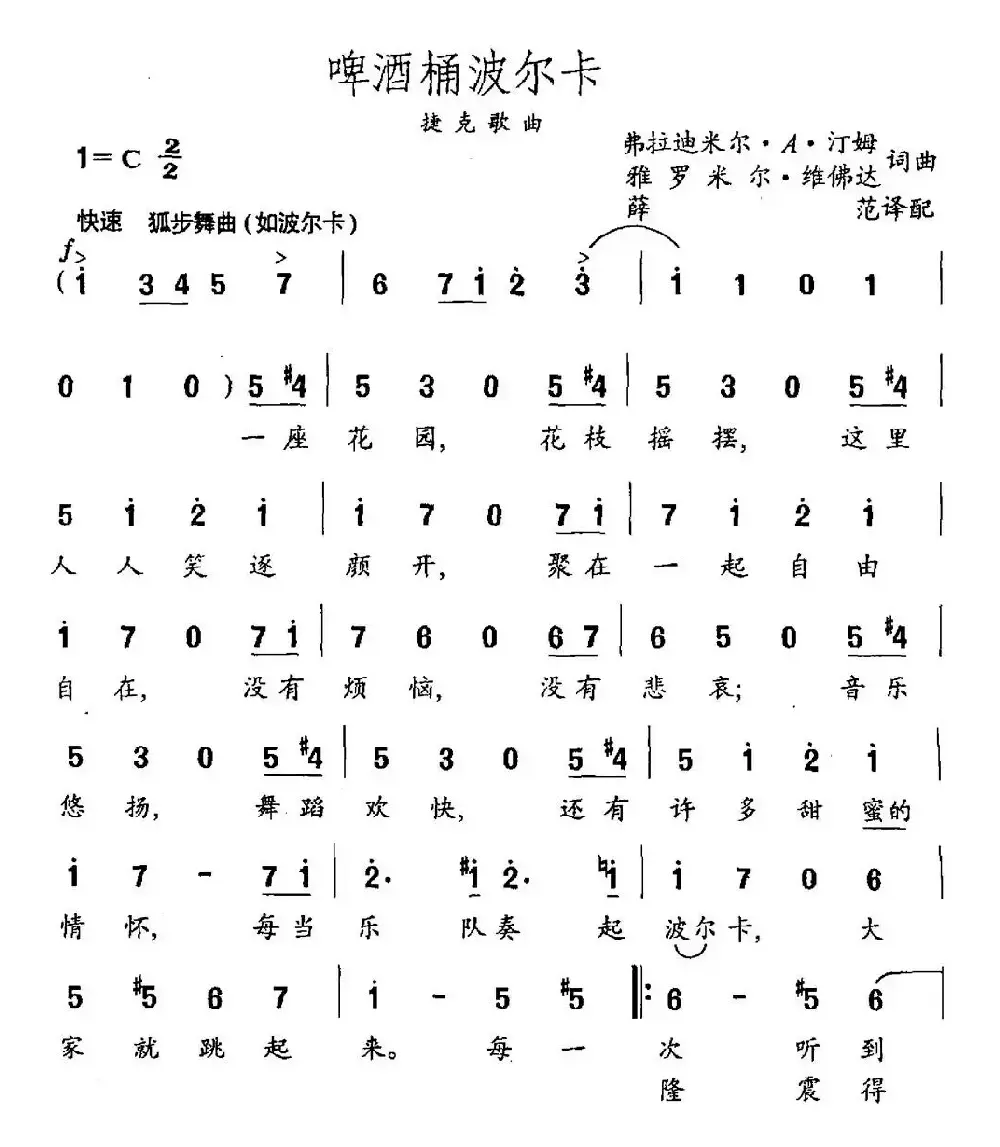 啤酒桶波尔卡
捷克歌曲
1=C 2/2
弗拉迪米尔·A·汀姆
雅罗米尔·维佛达 词曲
薛范译配
快速 狐步舞曲(如波尔卡)
f
( i̇ 3 4 5 7 | 6 7 i̇ 2̇ 3̇ | i̇ 1 0 1 |
0 1 0 ) 5 #4 | 5 3 0 5 #4 | 5 3 0 5 #4 |
一座花园, 花枝摇摆, 这里
5 i̇ 2̇ i̇ | i̇ 7 0 7 i̇ | 7 i̇ 2̇ i̇
人人笑逐颜开, 聚在一起自由
i̇ 7 0 7 i̇ | 7 6 0 6 7 | 6 5 0 5 #4 |
自在, 没有烦恼, 没有悲哀; 音乐
5 3 0 5 #4 | 5 3 0 5 #4 | 5 i̇ 2̇ i̇ |
悠扬, 舞蹈欢快, 还有许多甜蜜的
i̇ 7 - 7 i̇ | 2̇· #i̇ 2̇· ♮i̇ | i̇ 7 0 6 |
情怀, 每当乐队奏起波尔卡, 大
5 #5 6 7 | i̇ - 5 #5 ‖: 6 - #5 6 |
家就跳起来。每一次听到
隆震得